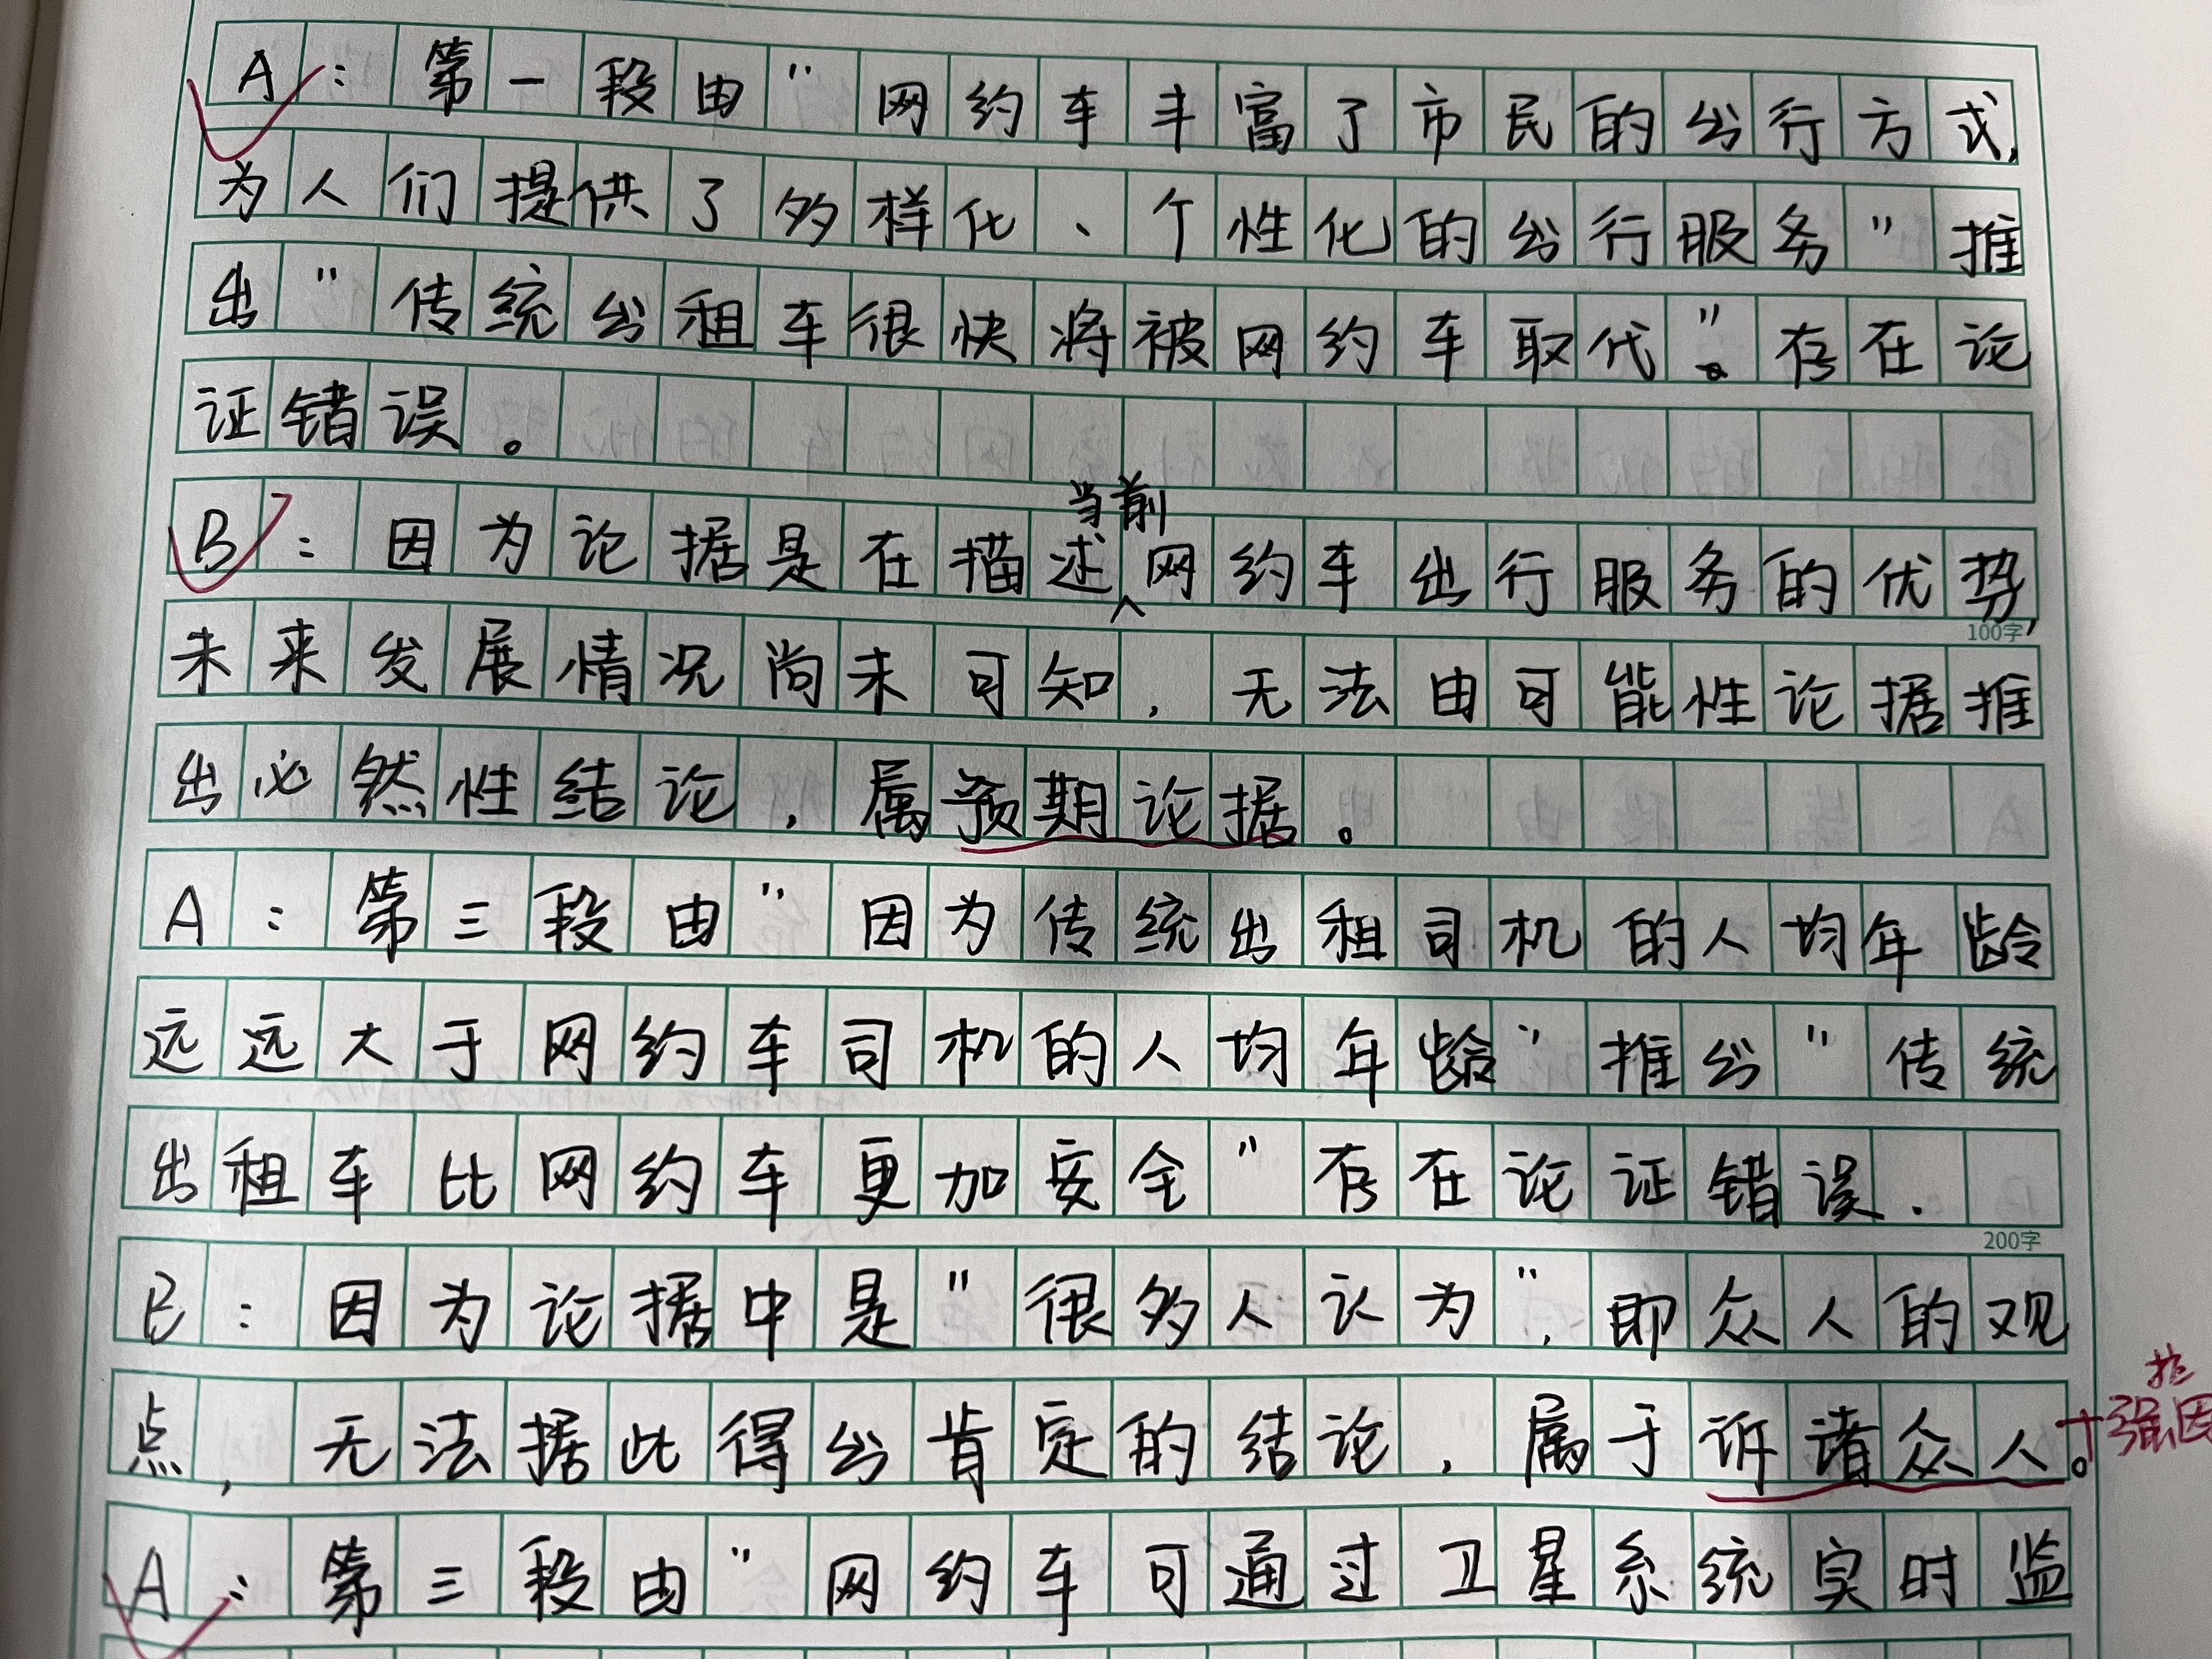 A：第一段由"网约车丰富了市民的出行方式，
为人们提供了多样化、个性化的出行服务"推
出"传统出租车很快将被网约车取代"。存在论
证错误。
当前
B：因为论据是在描述网约车出行服务的优势，
100字
未来发展情况尚未可知，无法由可能性论据推
出必然性结论，属预期论据。
A：第三段由"因为传统出租司机的人均年龄
远远大于网约车司机的人均年龄"推出"传统
出租车比网约车更加安全"存在论证错误.
200字
B：因为论据中是"很多人认为"，即众人的观
点，无法据此得出肯定的结论，属于诉诸众人。
+强因
A：第三段由"网约车可通过卫星系统实时监